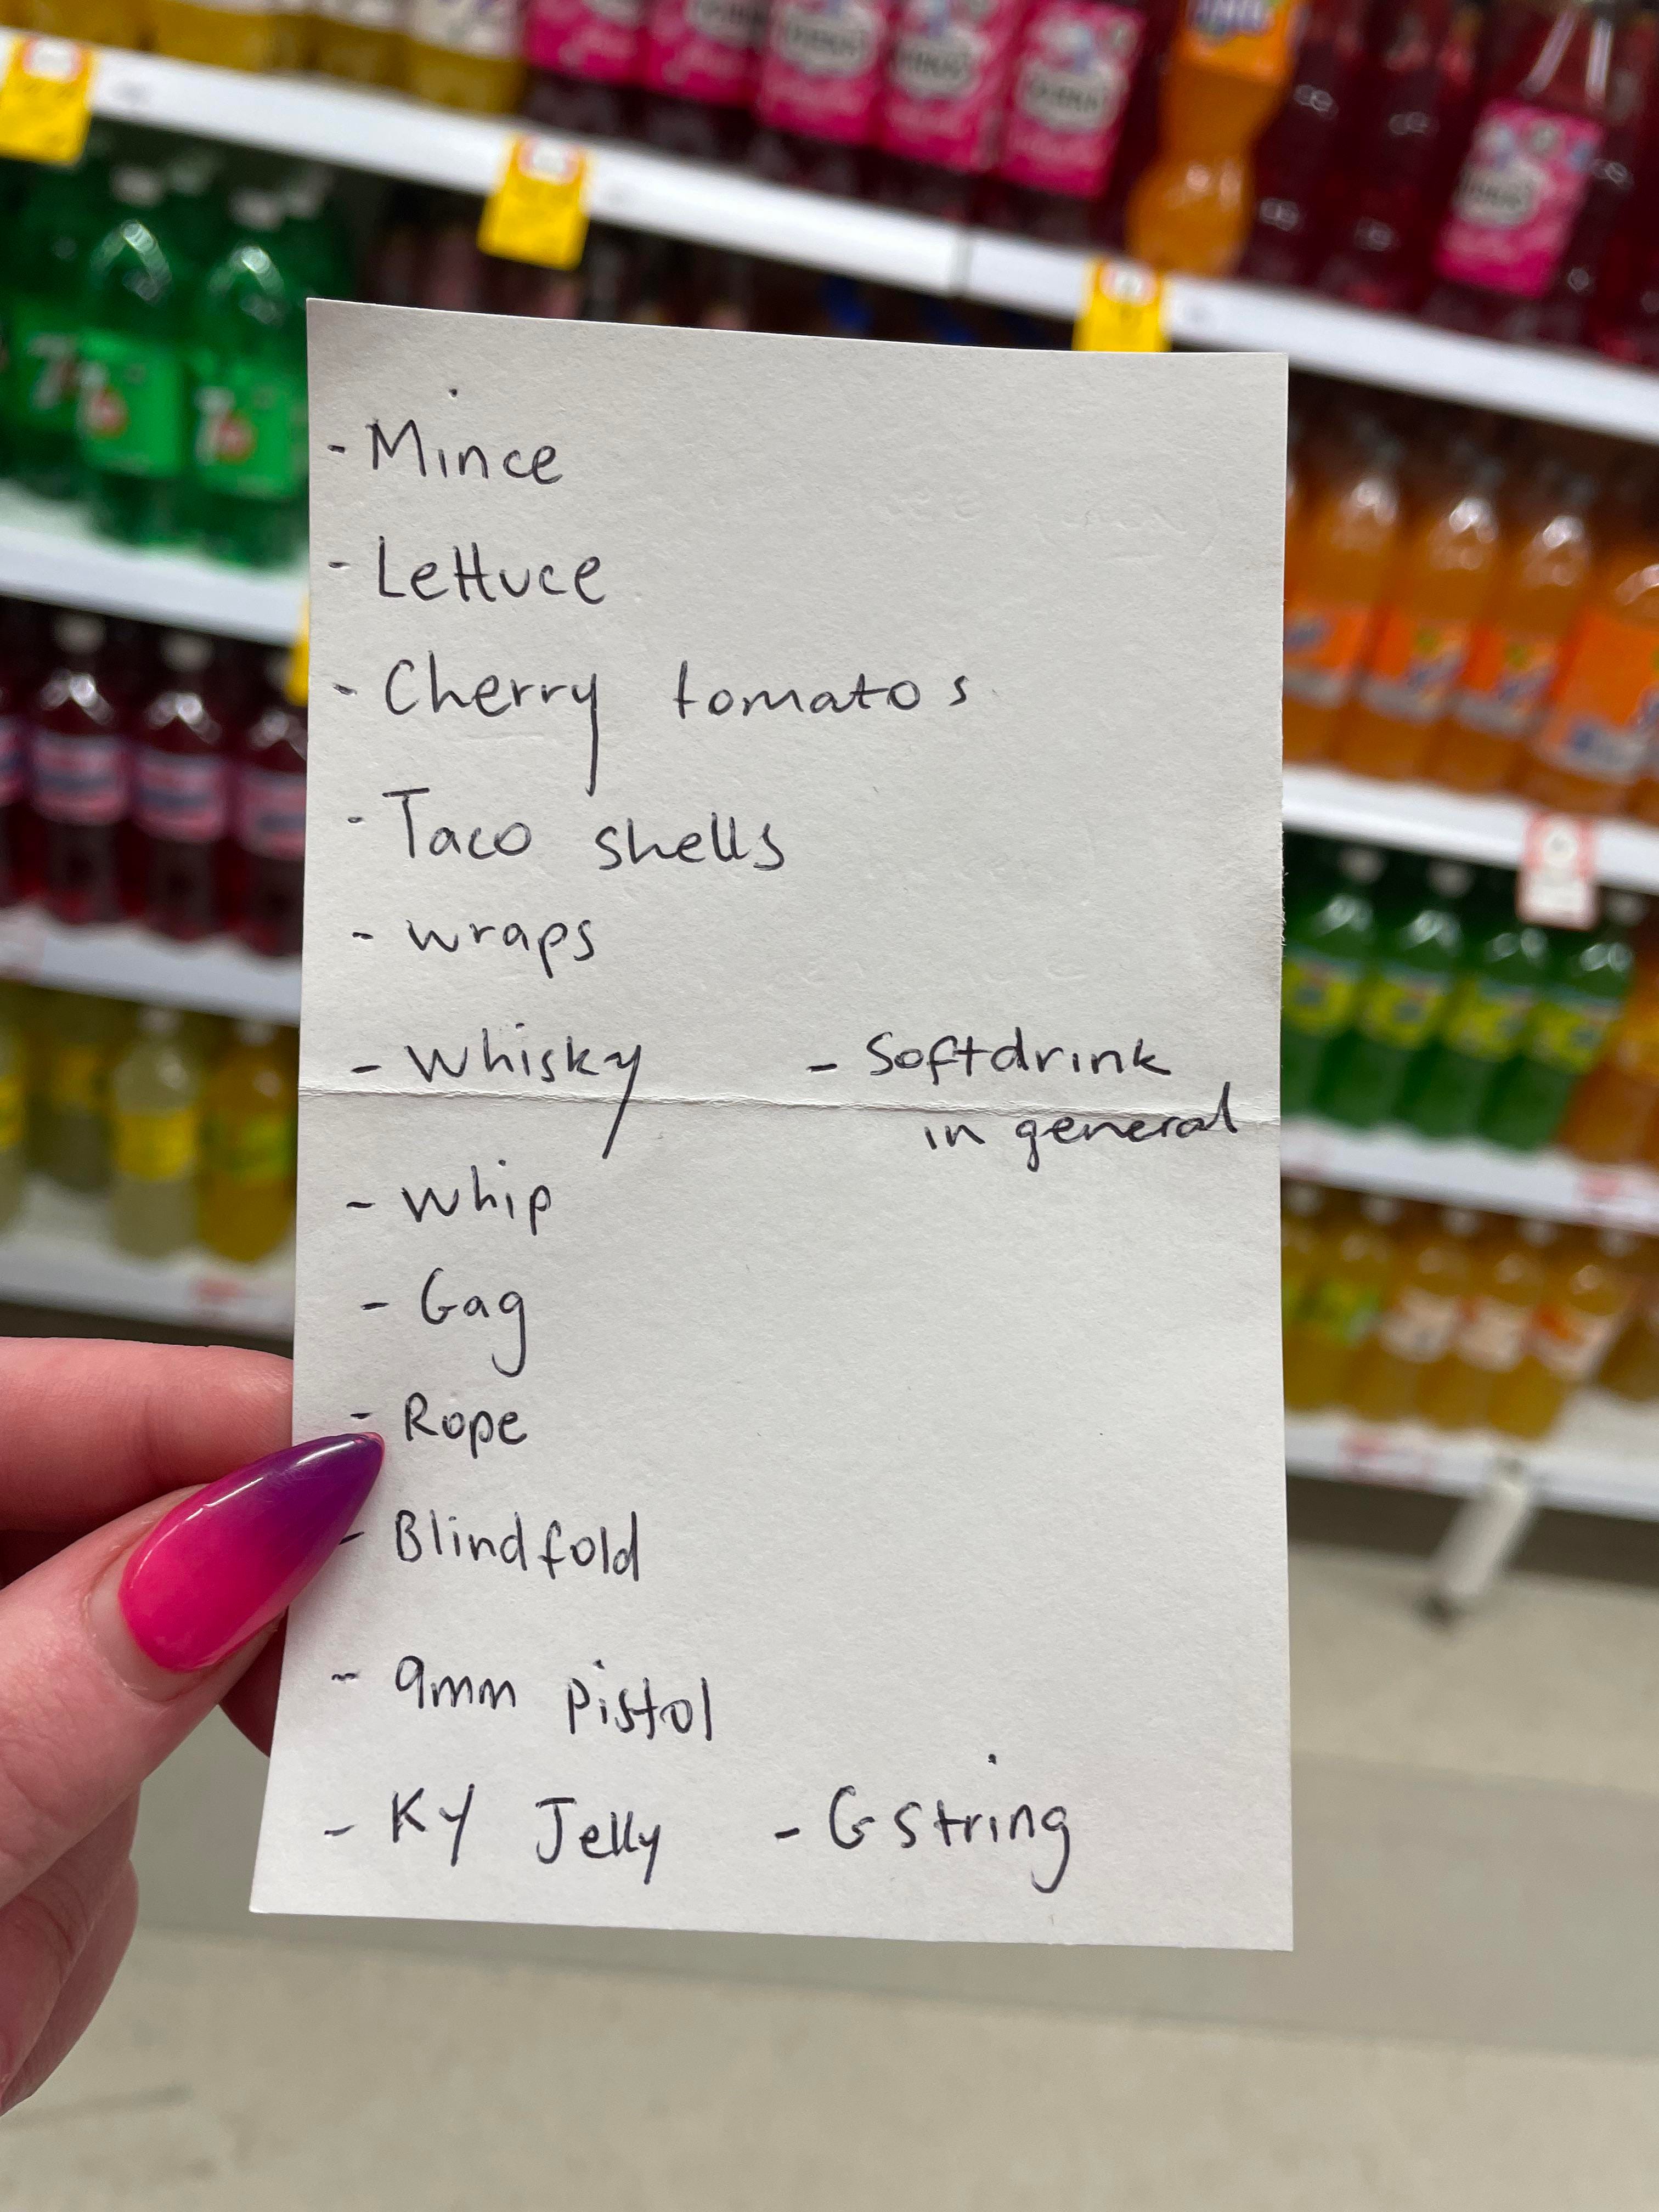 - Mince
- Lettuce
- Cherry tomatos
- Taco shells
- wraps
- Whisky - Softdrink
in general
- Whip
- Gag
- Rope
- Blindfold
- 9mm Pistol
- KY Jelly - G string